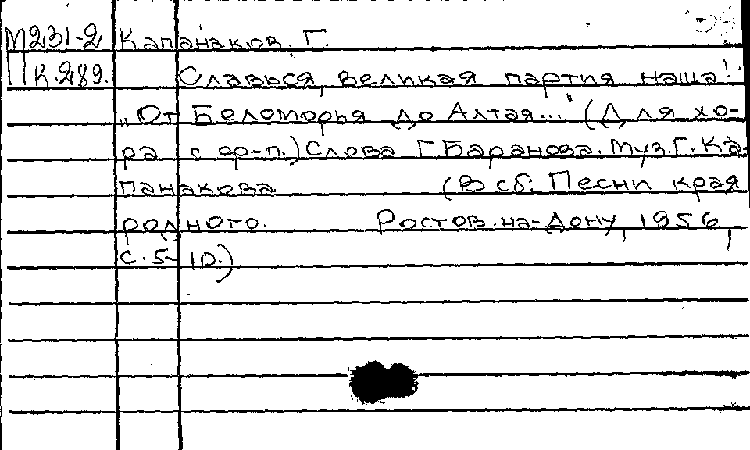 М231-2 Капанаков, Г.
П к.289. Славься, великая партия наша!
„От Беломорья до Алтая..." (Для хо-
ра с ф-п.) Слова Г. Баранова. Муз. Г. Ка-
панакова (В сб: Песни края
родного. Ростов-на-Дону, 1956,
с. 5-10.)